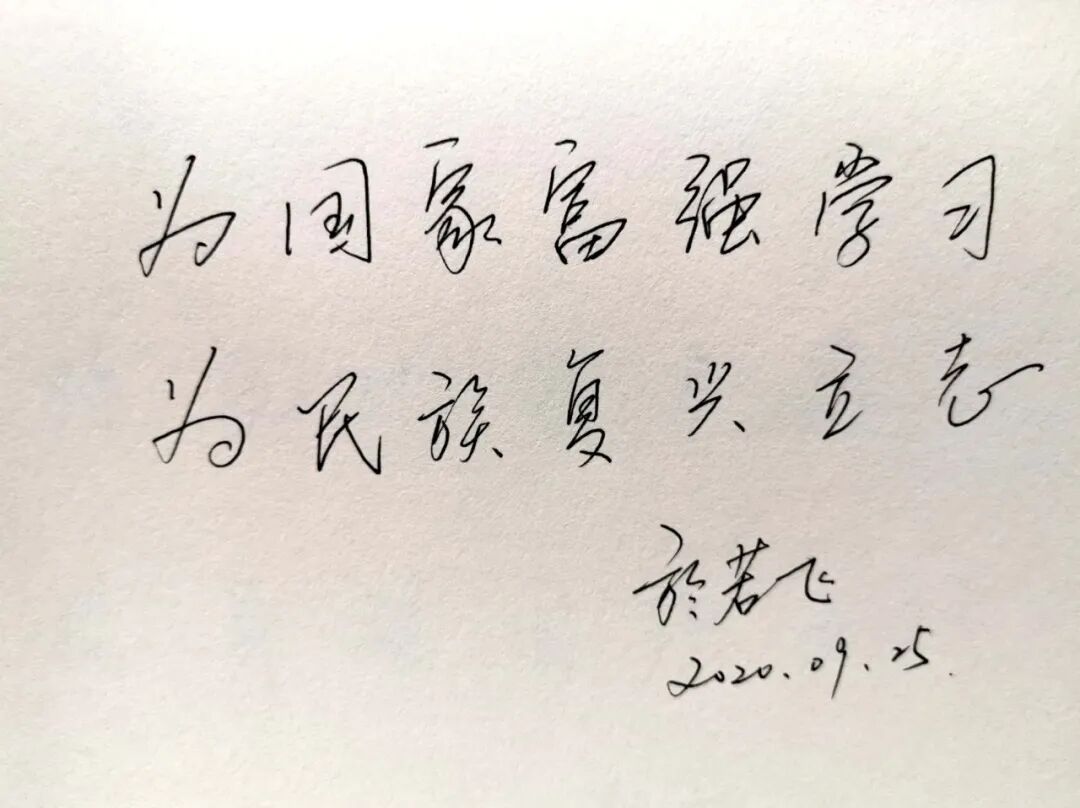 为国家富强学习
为民族复兴立志
於若飞
2020.09.25.